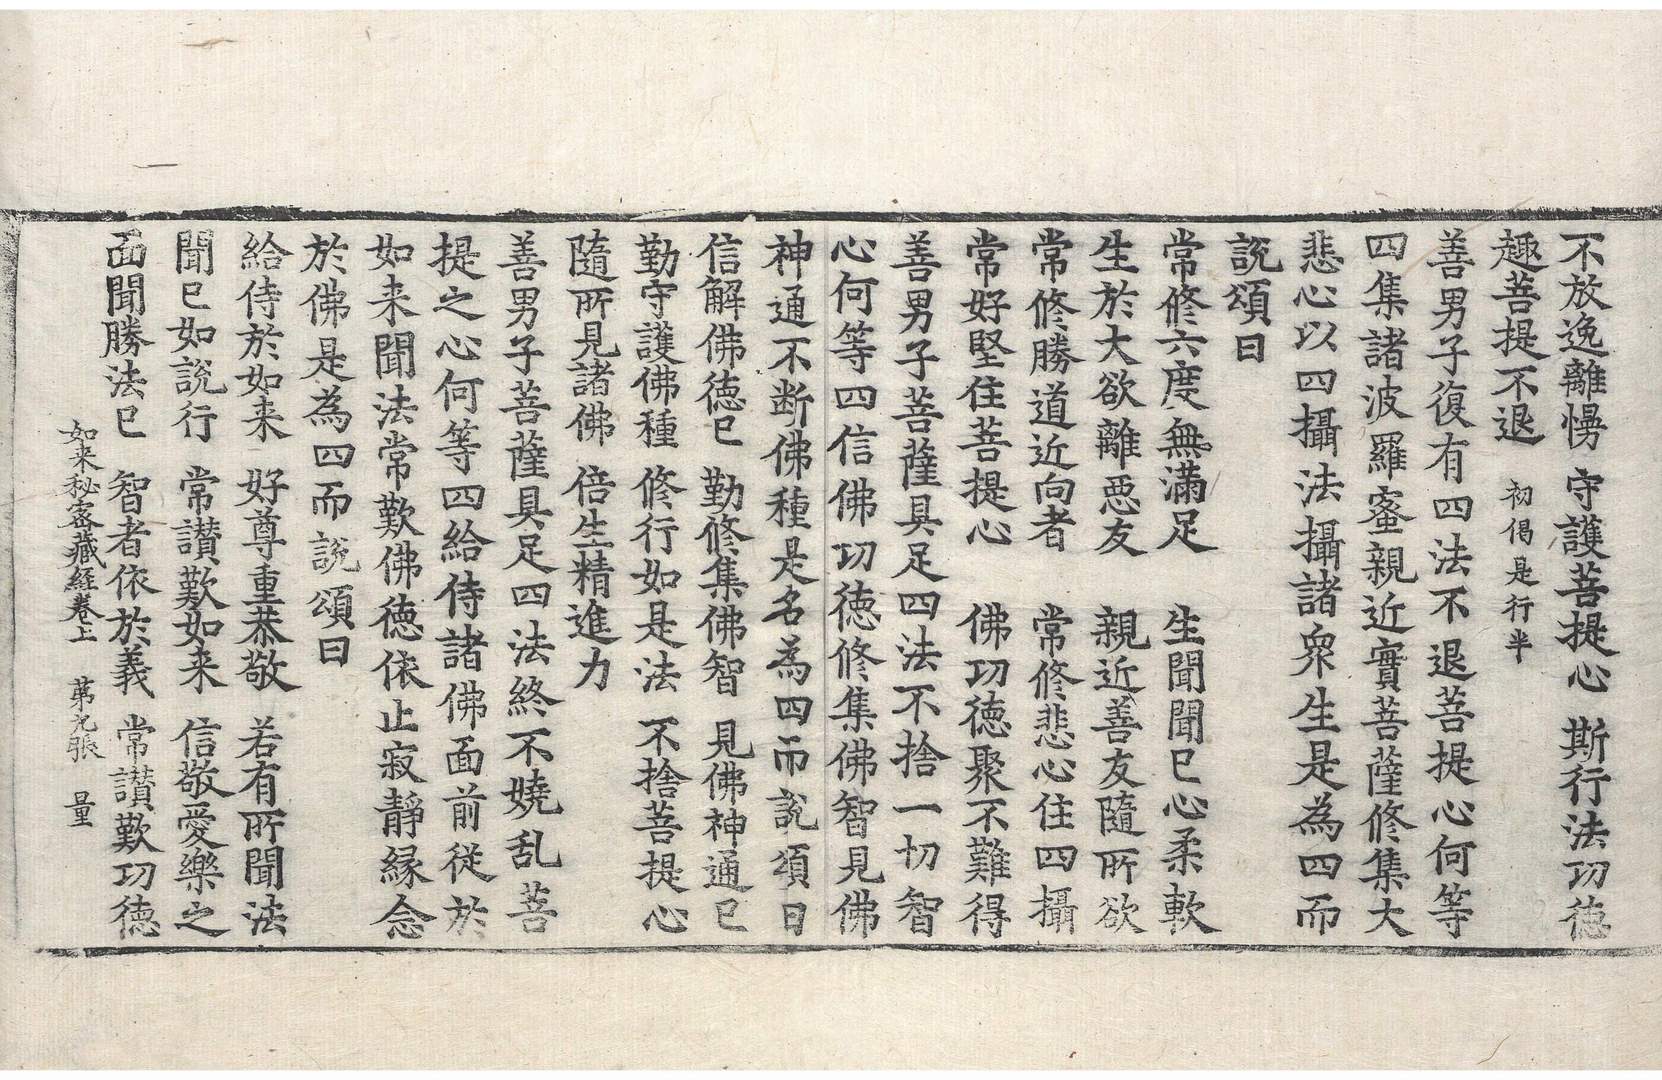 不放逸離慢 守護菩提心 斯行法功德
趣菩提不退 初偈是行半
善男子復有四法不退菩提心何等
四集諸波羅蜜親近實菩薩修集大
悲心以四攝法攝諸衆生是為四而
説頌曰
常修六度無滿足 生聞聞已心柔軟
生於大欲離惡友 親近善友隨所欲
常修勝道近向者 常修悲心住四攝
常好堅住菩提心 佛功徳聚不難得
善男子菩薩具足四法不捨一切智
心何等四信佛功徳修集佛智見佛
神通不断佛種是名為四而説頌曰
信解佛徳已 勤修集佛智 見佛神通已
勤守護佛種 修行如是法 不捨菩提心
隨所見諸佛 倍生精進力
善男子菩薩具足四法終不嬈乱菩
提之心何等四給侍諸佛面前従於
如来聞法常歎佛徳依止寂靜縁念
於佛是為四而説頌曰
給侍於如来 好尊重恭敬 若有所聞法
聞已如説行 常讃歎如来 信敬愛樂之
面聞勝法已 智者依於義 常讃歎功徳
如来秘密藏経卷上 第九張 量